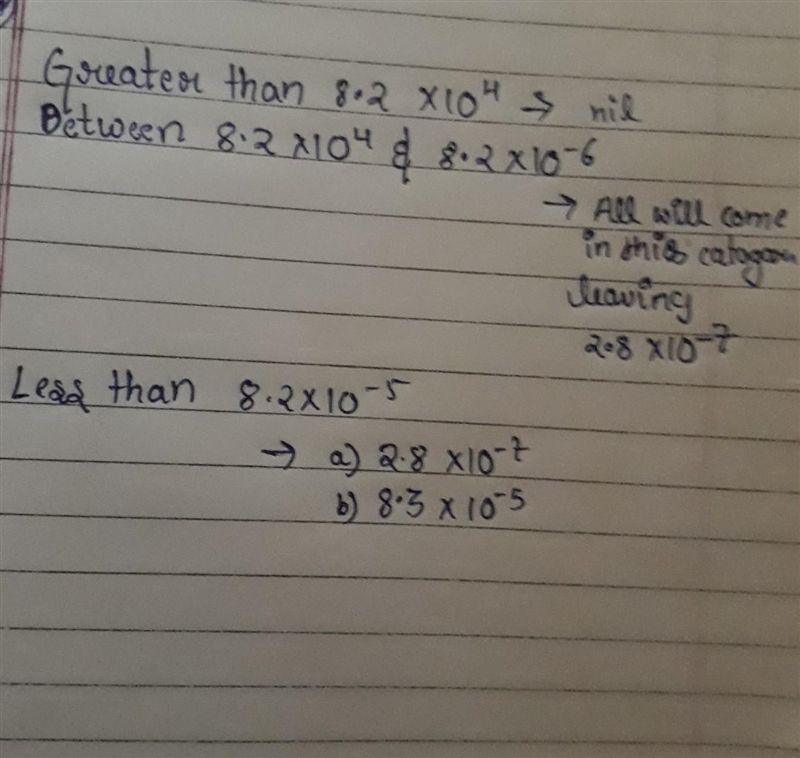 Greater than 8.2 ×10⁴ → nil
Between 8.2 ×10⁴ & 8.2 ×10⁻⁶
→ All will come
in this catagory
leaving
2.8 ×10⁻⁷
Less than 8.2×10⁻⁵
→ a) 2.8 ×10⁻⁷
b) 8.3 × 10⁻⁵